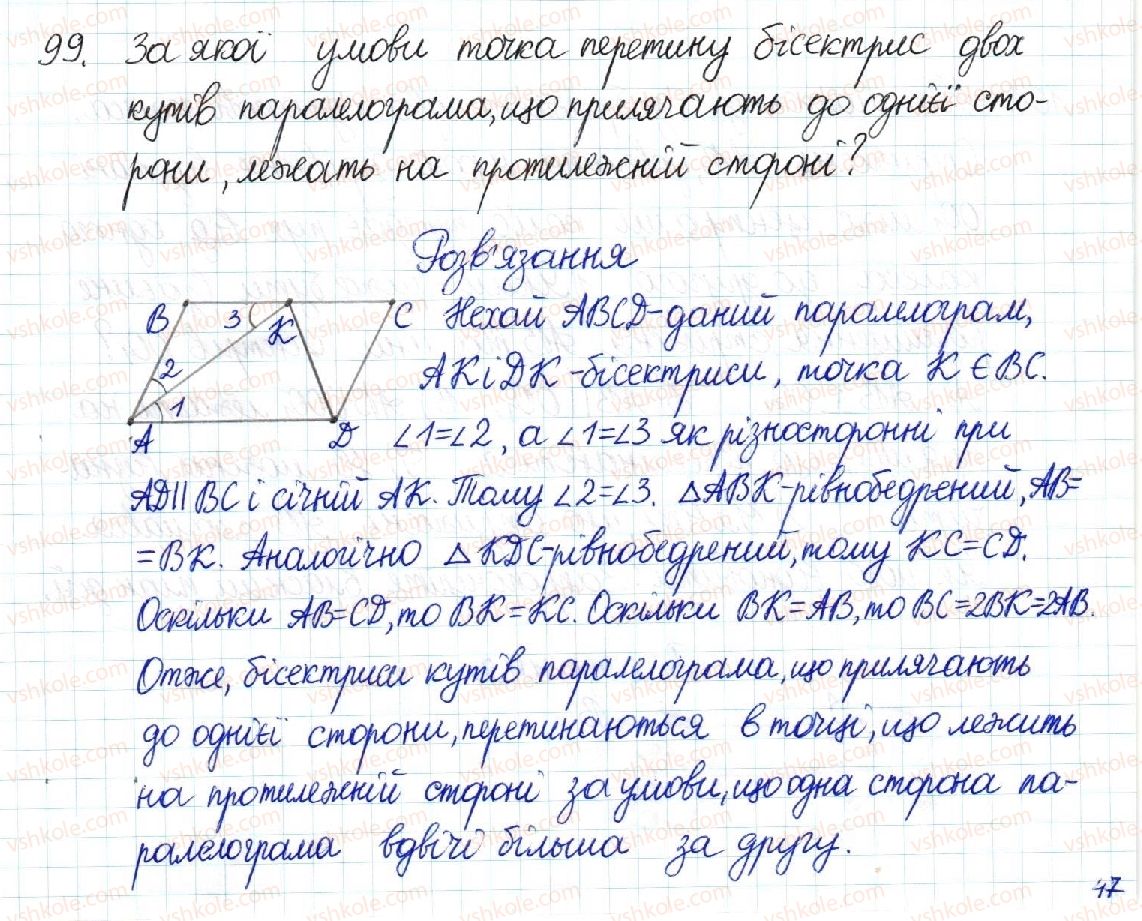 99. За якої умови точка перетину бісектрис двох
кутів паралелограма, що прилячають до однієї сто-
рони, лежать на протилежній стороні?
Розв'язання
B 3 K C Нехай ABCD-даний паралелограм,
2 AK і DK-бісектриси, точка K ∈ BC.
1 A D ∠1=∠2, а ∠1=∠3 як різносторонні при
AD||BC і січній AK. Тому ∠2=∠3. △ABK-рівнобедрений, AB=
=BK. Аналогічно △KDC-рівнобедрений, тому KC=CD.
Оскільки AB=CD, то BK=KC. Оскільки BK=AB, то BC=2BK=2AB.
Отже, бісектриси кутів паралелограма, що прилячають
до однієї сторони, перетинаються в точці, що лежить
на протилежній стороні за умови, що одна сторона па-
ралелограма вдвічі більша за другу.
47
vshkole.com